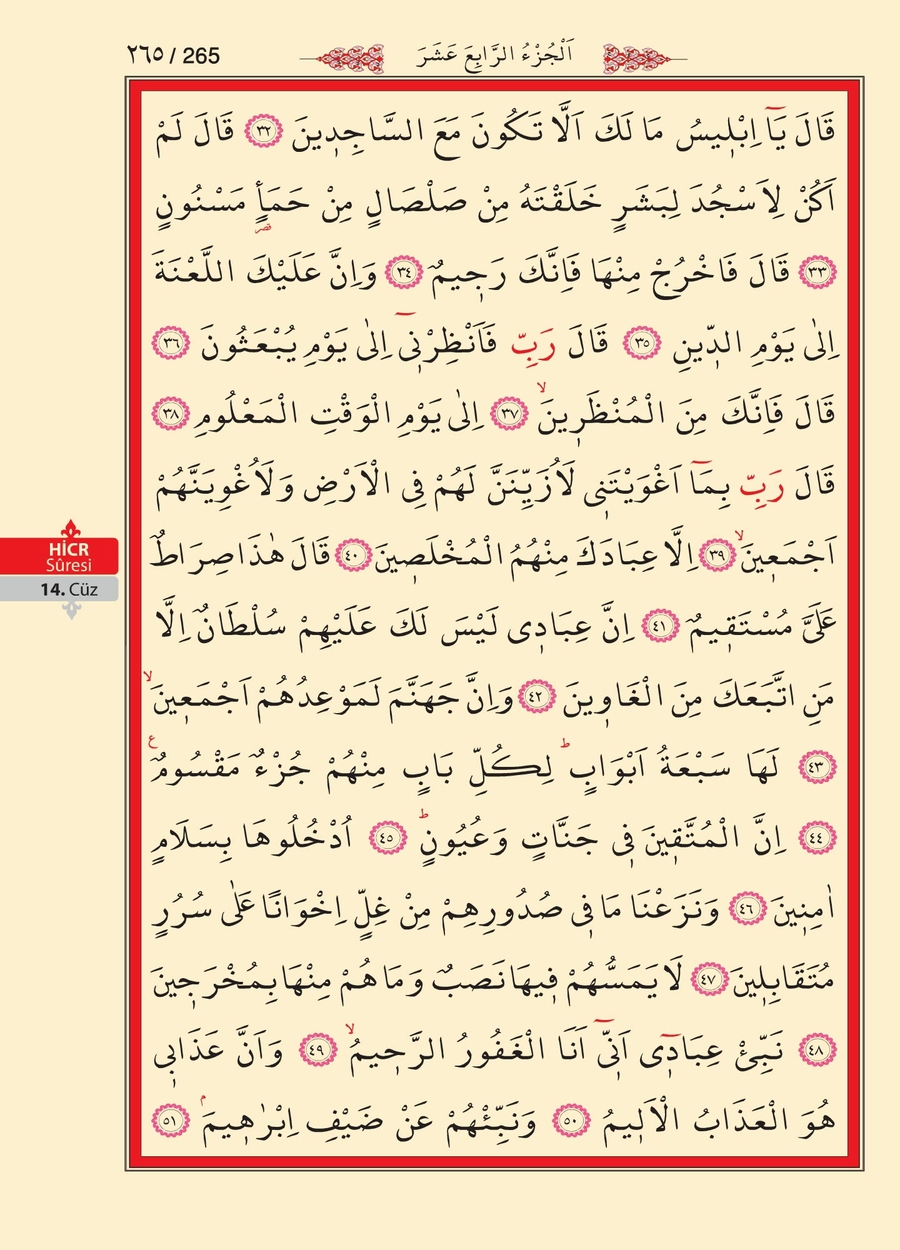 ٢٦٥ / 265
اَلْجُزْءُ الرَّابِعَ عَشَرَ
قَالَ يَٓا اِبْلِيسُ مَا لَكَ اَلَّا تَكُونَ مَعَ السَّاجِدِينَ ﴿٣٢﴾ قَالَ لَمْ
اَكُنْ لِاَسْجُدَ لِبَشَرٍ خَلَقْتَهُ مِنْ صَلْصَالٍ مِنْ حَمَأٍ مَسْنُونٍ
﴿٣٣﴾ قَالَ فَاخْرُجْ مِنْهَا فَاِنَّكَ رَجِيمٌ ﴿٣٤﴾ وَاِنَّ عَلَيْكَ اللَّعْنَةَ
اِلٰى يَوْمِ الدِّينِ ﴿٣٥﴾ قَالَ رَبِّ فَاَنْظِرْنِٓى اِلٰى يَوْمِ يُبْعَثُونَ ﴿٣٦﴾
قَالَ فَاِنَّكَ مِنَ الْمُنْظَرِينَۙ ﴿٣٧﴾ اِلٰى يَوْمِ الْوَقْتِ الْمَعْلُومِ ﴿٣٨﴾
قَالَ رَبِّ بِمَٓا اَغْوَيْتَنِى لَاُزَيِّنَنَّ لَهُمْ فِى الْاَرْضِ وَلَاُغْوِيَنَّهُمْ
اَجْمَعِينَۙ ﴿٣٩﴾ اِلَّا عِبَادَكَ مِنْهُمُ الْمُخْلَصِينَ ﴿٤٠﴾ قَالَ هٰذَا صِرَاطٌ
عَلَىَّ مُسْتَقِيمٌ ﴿٤١﴾ اِنَّ عِبَادِى لَيْسَ لَكَ عَلَيْهِمْ سُلْطَانٌ اِلَّا
مَنِ اتَّبَعَكَ مِنَ الْغَاوِينَ ﴿٤٢﴾ وَاِنَّ جَهَنَّمَ لَمَوْعِدُهُمْ اَجْمَعِينَۙ
﴿٤٣﴾ لَهَا سَبْعَةُ اَبْوَابٍۜ لِكُلِّ بَابٍ مِنْهُمْ جُزْءٌ مَقْسُومٌ ع
﴿٤٤﴾ اِنَّ الْمُتَّقِينَ فِى جَنَّاتٍ وَعُيُونٍۜ ﴿٤٥﴾ اُدْخُلُوهَا بِسَلَامٍ
اٰمِنِينَ ﴿٤٦﴾ وَنَزَعْنَا مَا فِى صُدُورِهِمْ مِنْ غِلٍّ اِخْوَانًا عَلٰى سُرُرٍ
مُتَقَابِلِينَ ﴿٤٧﴾ لَا يَمَسُّهُمْ فِيهَا نَصَبٌ وَمَا هُمْ مِنْهَا بِمُخْرَجِينَ
﴿٤٨﴾ نَبِّئْ عِبَادِٓى اَنِّٓى اَنَا الْغَفُورُ الرَّحِيمُۙ ﴿٤٩﴾ وَاَنَّ عَذَابِى
هُوَ الْعَذَابُ الْاَلِيمُ ﴿٥٠﴾ وَنَبِّئْهُمْ عَنْ ضَيْفِ اِبْرٰهِيمَۢ ﴿٥١﴾
HİCR
Sûresi
14. Cüz